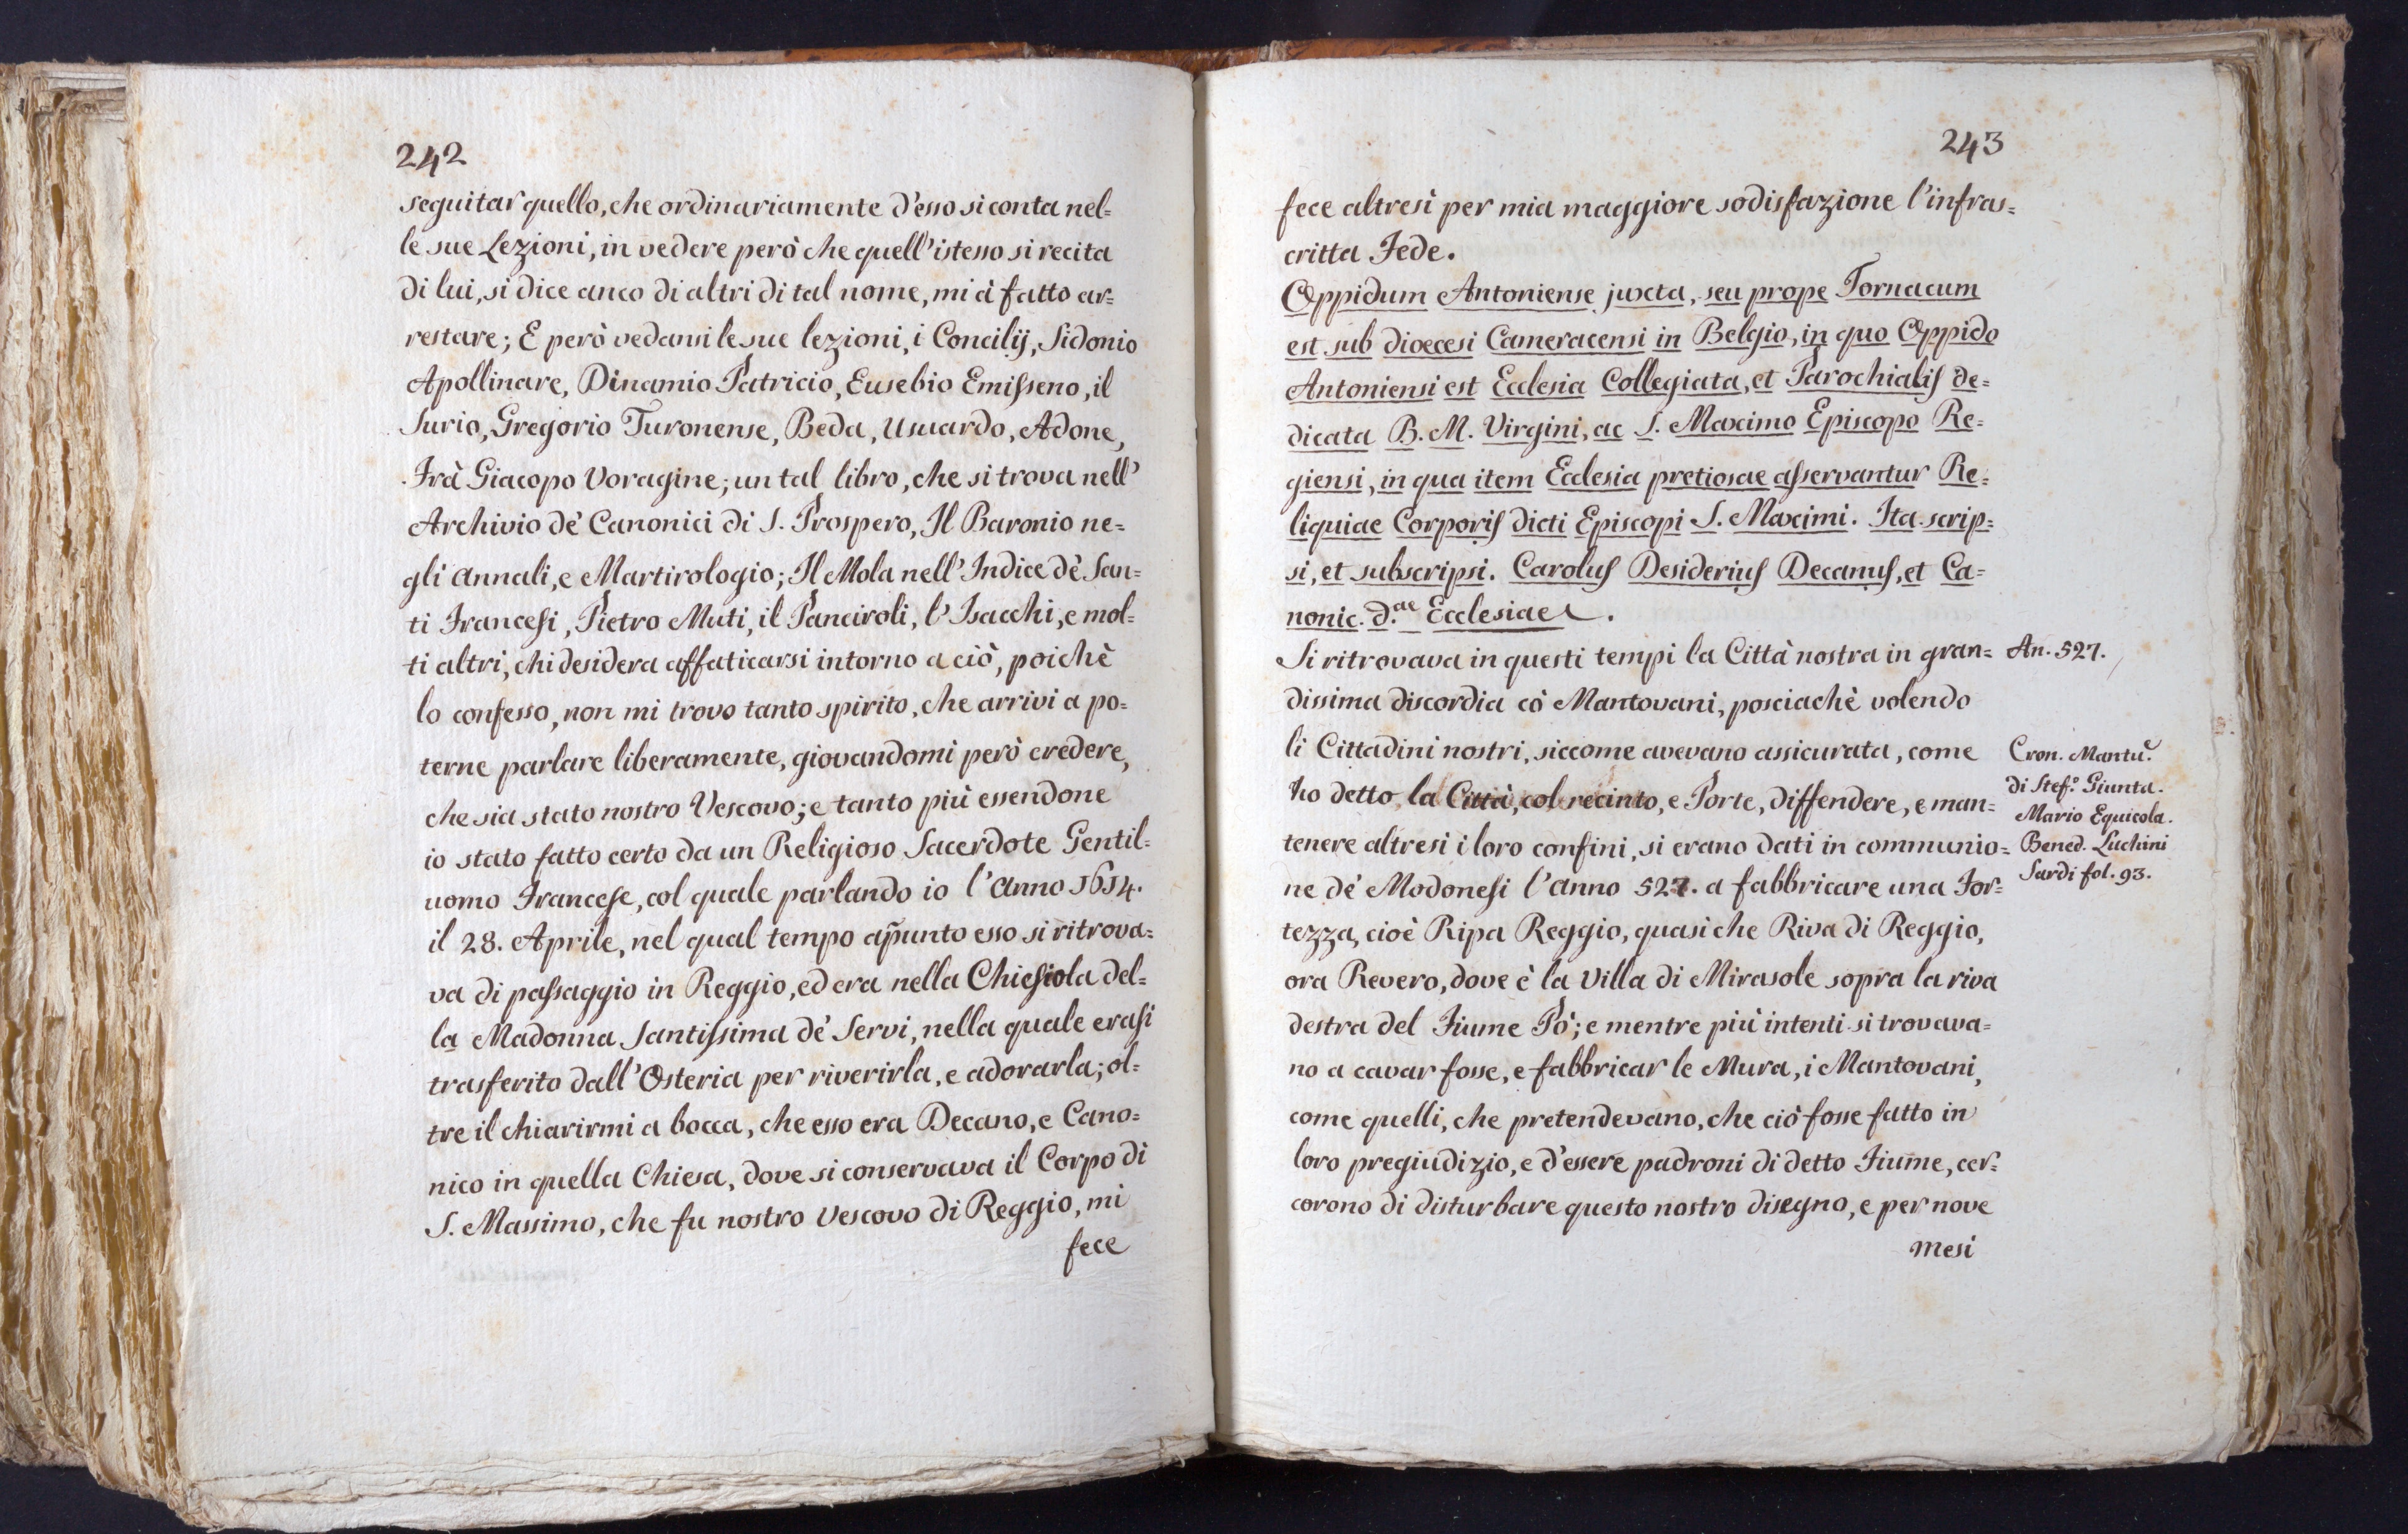 242
seguitar quello, che ordinariamente d'esso si conta nel=
le sue Lezioni, in vedere però che quell'istesso si recita
di lui, si dice anco di altri di tal nome, mi à fatto ar=
restare; E però vedansi le sue lezioni, i Concilij, Sidonio
Apollinare, Dinamio Patricio, Eusebio Emisseno, il
Surio, Gregorio Turonense, Beda, Usuardo, Adone,
Frà Giacopo Voragine; un tal libro, che si trova nell'
Archivio de' Canonici di S. Prospero, Il Baronio ne=
gli Annali, e Martirologio; Il Mola nell'Indice dè San=
ti Francesi, Pietro Muti, il Panciroli, l'Isacchi, e mol=
ti altri, chi desidera affaticarsi intorno a ciò, poichè
lo confesso, non mi trovo tanto spirito, che arrivi a po=
terne parlare liberamente, giovandomi però credere,
che sia stato nostro Vescovo; e tanto più essendone
io stato fatto certo da un Religioso Sacerdote Gentil=
uomo Francese, col quale parlando io l'Anno 1614.
il 28. Aprile, nel qual tempo ap̃unto esso si ritrova=
va di passaggio in Reggio, ed era nella Chiesiola del=
la Madonna Santissima dè Servi, nella quale erasi
trasferito dall'Osteria per riverirla, e adorarla; ol=
tre il chiarirmi a bocca, che esso era Decano, e Cano=
nico in quella Chiesa, dove si conservava il Corpo di
S. Massimo, che fu nostro Vescovo di Reggio, mi
fece
243
fece altresì per mia maggiore sodisfazione l'infras=
critta Fede.
Oppidum Antoniense juxta, seu prope Tornacum
est sub dioecesi Cameracensi in Belgio, in quo Oppido
Antoniensi est Ecclesia Collegiata, et Parochialis de=
dicata B. M. Virgini, ac S. Maximo Episcopo Re=
giensi, in qua item Ecclesia pretiosae asservantur Re=
liquiae Corporis dicti Episcopi S. Maximi. Ita scrip=
si, et subscripsi. Carolus Desiderius Decanus, et Ca=
nonic. d.ae Ecclesiae.
Si ritrovava in questi tempi la Città nostra in gran=
An. 527.
dissima discordia cò Mantovani, posciachè volendo
li Cittadini nostri, siccome avevano assicurata, come
ho detto, la Città, col recinto, e Porte, diffendere, e man=
tenere altresì i loro confini, si erano dati in communio=
ne de' Modonesi l'Anno 527. a fabbricare una For=
tezza, cioè Ripa Reggio, quasi che Riva di Reggio,
ora Revero, dove è la Villa di Mirasole sopra la riva
destra del Fiume Pò; e mentre più intenti si trovava=
no a cavar fosse, e fabbricar le Mura, i Mantovani,
come quelli, che pretendevano, che ciò fosse fatto in
loro pregiudizio, e d'essere padroni di detto Fiume, cer=
corono di disturbare questo nostro disegno, e per nove
mesi
Cron. Mantu.
di Stef.o Giunta.
Mario Equicola.
Bened. Luchini
Sardi fol. 93.